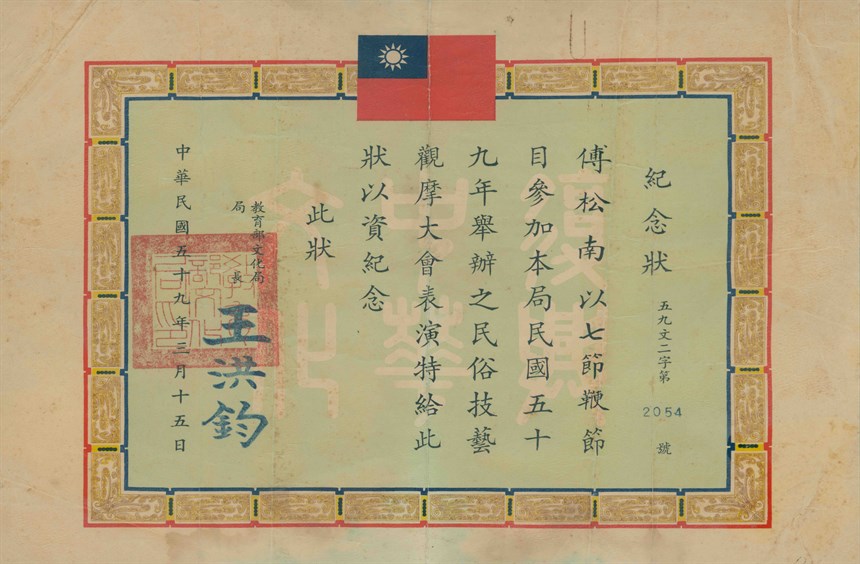 紀念狀
五九文二字第 2054 號
傅松南以七節鞭節
目參加本局民國五十
九年舉辦之民俗技藝
觀摩大會表演特給此
狀以資紀念
此狀
教育部文化局
局長
王洪鈞
中華民國五十九年三月十五日
復興
中華
文化